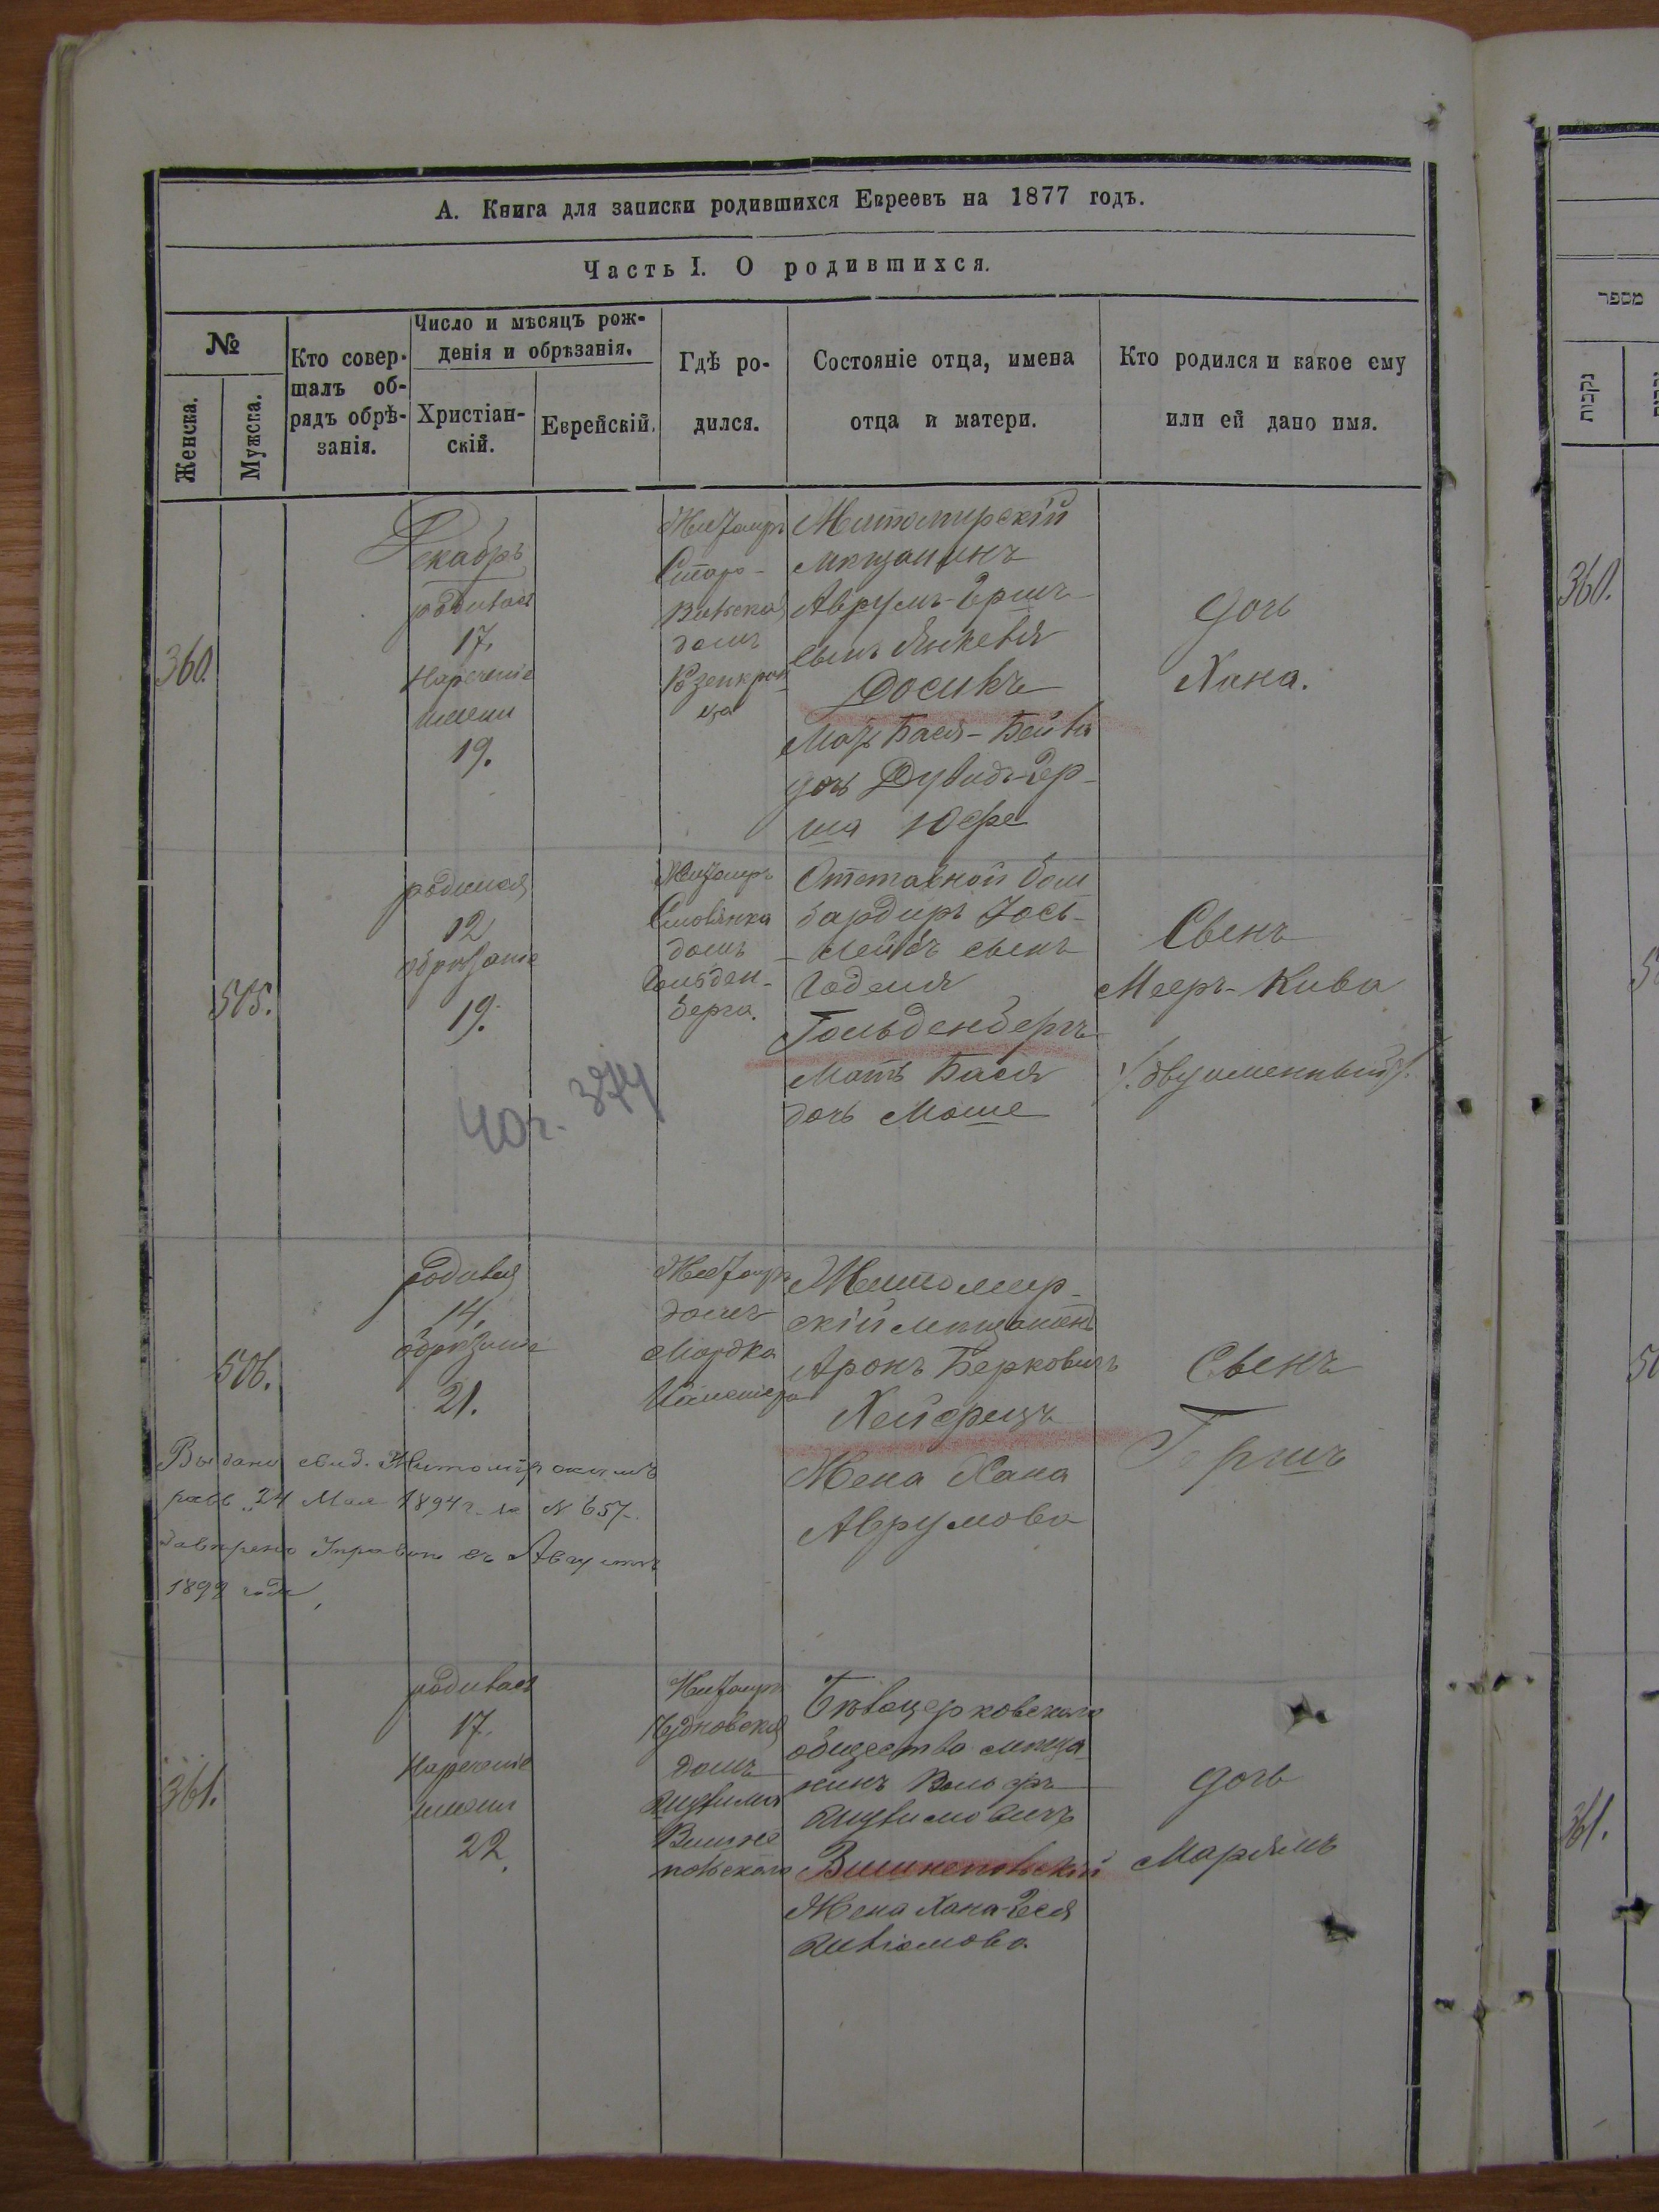 А. Книга для записки родившихся Евреевъ на 1877 годъ.
Часть I. О родившихся.
№
Женска.
Мужска.
Кто совер-
шалъ об-
рядъ обрѣ-
занія.
Число и мѣсяцъ рож-
денія и обрѣзанія.
Христіан-
скій.
Еврейскій.
Гдѣ ро-
дился.
Состояніе отца, имена
отца и матери.
Кто родился и какое ему
или ей дано имя.
360.
Декабрь
родилась
17.
Нареченіе
имени
19.
Житомръ
Старо-
Вильская
домъ
Житомирскій
мѣщанинъ
Аврумъ-Гершъ
сынъ Янкеля
Досикъ
Мать Бася-Бейла
дочь Дувидъ-Гер-
ша Юфе
дочь
Хана.
505.
родился
12
обрѣзаніе
19.
Житомръ
домъ
Гольден-
берга.
Отставной бом
бардиръ Іось-
Лейбъ сынъ
Годеля
Гольденбергъ
Мать Бася
дочь Моше
Сынъ
Мееръ-Кива
/.двуименный/.
40г. 374
506.
родился
14.
обрѣзаніе
21.
Житомръ
домъ
Мордка
Житомир-
скій мѣщанинъ
Аронъ Берковичъ
Хейфецъ
Жена Хана
Аврумова
Сынъ
Гершъ
Выдано свид. Житомірскимъ
рабв. 24 Мая 1894 г. за № 657.
въ Августѣ
1899 года
361.
родилась
17.
Нареченіе
имени
22.
Житомръ
Чудновская
домъ
Вишне
польскаго
Бѣлоцерковскаго
общества мѣща
нинъ Вольфъ
Вишнепольскій
Жена Хана-Геся
дочь
Марьямъ
מספר
נקבות
360.
50
50
361.